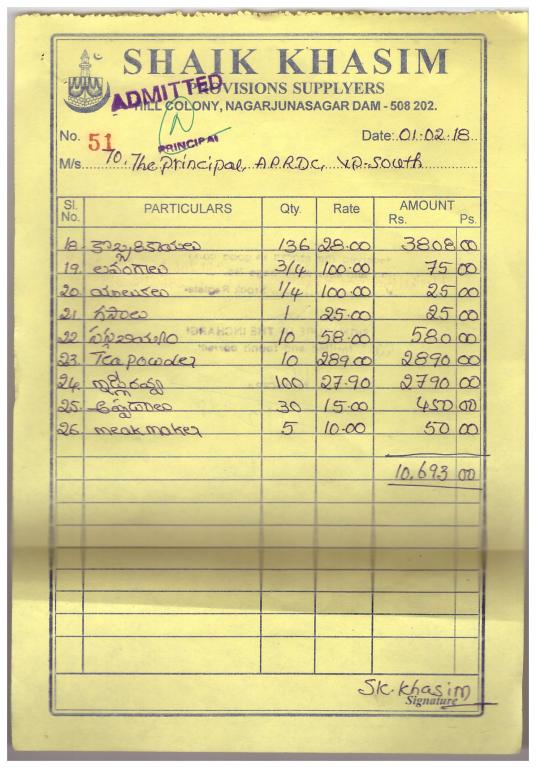 SHAIK KHASIM
PROVISIONS SUPPLYERS
HILL COLONY, NAGARJUNASAGAR DAM - 508 202.
ADMITTED
PRINCIPAL
No. 51 Date: 01.02.18
M/s. To. The Principal, A.P.R.D.C, V.P-South
Sl. No. PARTICULARS Qty. Rate AMOUNT Rs. Ps.
18. కొబ్బరికాయలు 136 28.00 3808 00
19. లవంగాలు 3/4 100.00 75 00
20. యాలకలు 1/4 100.00 25 00
21 గసాలు 1 25.00 25 00
22 10 58.00 580 00
23. Tea powder 10 289.00 2890 00
24. ఇడ్లీరవ్వ 100 27.90 2790 00
25. అప్పడాలు 30 15.00 450 00
26. meak maker 5 10.00 50 00
10,693 00
SK. Khasim
Signature